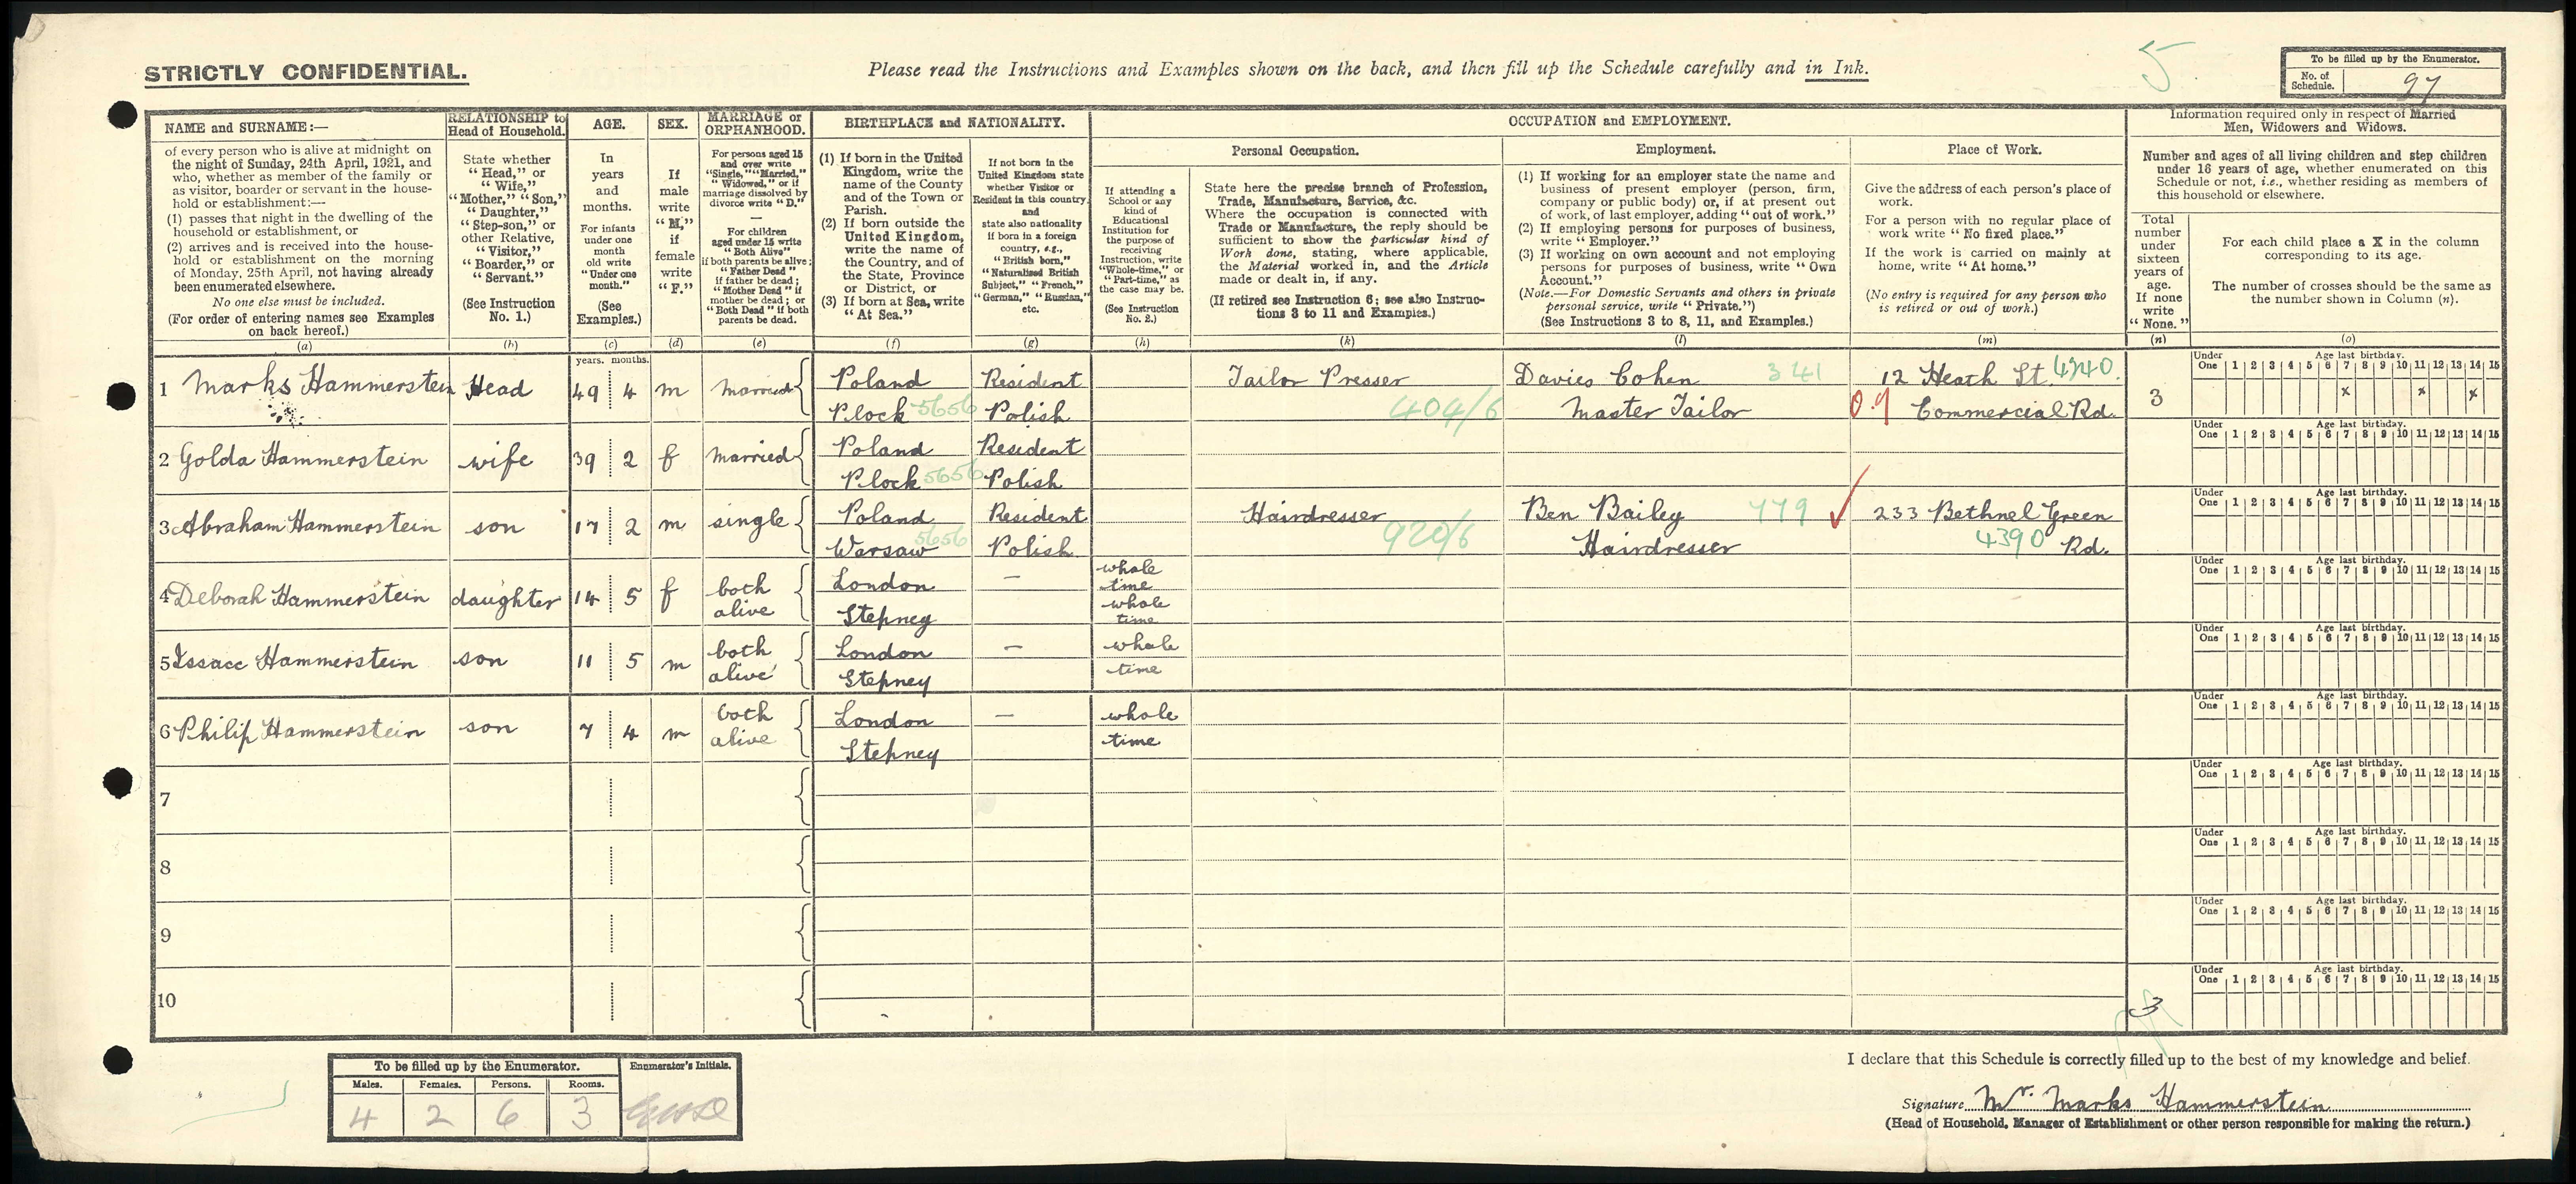 STRICTLY CONFIDENTIAL.
Please read the Instructions and Examples shown on the back, and then fill up the Schedule carefully and in Ink.
5
To be filled up by the Enumerator.
No. of Schedule. 97
NAME and SURNAME:—
of every person who is alive at midnight on
the night of Sunday, 24th April, 1921, and
who, whether as member of the family or
as visitor, boarder or servant in the house-
hold or establishment:—
(1) passes that night in the dwelling of the
household or establishment, or
(2) arrives and is received into the house-
hold or establishment on the morning
of Monday, 25th April, not having already
been enumerated elsewhere.
No one else must be included.
(For order of entering names see Examples
on back hereof.)
(a)
RELATIONSHIP to
Head of Household.
State whether
"Head," or
"Wife,"
"Mother," "Son,"
"Daughter,"
"Step-son," or
other Relative,
"Visitor,"
"Boarder," or
"Servant."
(See Instruction
No. 1.)
(b)
AGE.
In
years
and
months.
For infants
under one
month
old write
"Under one
month."
(See
Examples.)
(c)
SEX.
If
male
write
"M,"
if
female
write
"F."
(d)
MARRIAGE or
ORPHANHOOD.
For persons aged 15
and over write
"Single," "Married,"
"Widowed," or if
marriage dissolved by
divorce write "D."
—
For children
aged under 15 write
"Both Alive"
if both parents be alive;
"Father Dead"
if father be dead;
"Mother Dead" if
mother be dead; or
"Both Dead" if both
parents be dead.
(e)
BIRTHPLACE and NATIONALITY.
(1) If born in the United
Kingdom, write the
name of the County
and of the Town or
Parish.
(2) If born outside the
United Kingdom,
write the name of
the Country, and of
the State, Province
or District, or
(3) If born at Sea, write
"At Sea."
(f)
If not born in the
United Kingdom state
whether Visitor or
Resident in this country
and
state also nationality
if born in a foreign
country, e.g.,
"British born,"
"Naturalised British
Subject," "French,"
"German," "Russian,"
etc.
(g)
OCCUPATION and EMPLOYMENT.
If attending a
School or any
kind of
Educational
Institution for
the purpose of
receiving
Instruction, write
"Whole-time," or
"Part-time," as
the case may be.
(See Instruction
No. 2.)
(h)
Personal Occupation.
State here the precise branch of Profession,
Trade, Manufacture, Service, &c.
Where the occupation is connected with
Trade or Manufacture, the reply should be
sufficient to show the particular kind of
Work done, stating, where applicable,
the Material worked in, and the Article
made or dealt in, if any.
(If retired see Instruction 6; see also Instruc-
tions 3 to 11 and Examples.)
(k)
Employment.
(1) If working for an employer state the name and
business of present employer (person, firm,
company or public body) or, if at present out
of work, of last employer, adding "out of work."
(2) If employing persons for purposes of business,
write "Employer."
(3) If working on own account and not employing
persons for purposes of business, write "Own
Account."
(Note.—For Domestic Servants and others in private
personal service, write "Private.")
(See Instructions 3 to 8, 11, and Examples.)
(l)
Place of Work.
Give the address of each person's place of
work.
For a person with no regular place of
work write "No fixed place."
If the work is carried on mainly at
home, write "At home."
(No entry is required for any person who
is retired or out of work.)
(m)
Information required only in respect of Married
Men, Widowers and Widows.
Number and ages of all living children and step children
under 16 years of age, whether enumerated on this
Schedule or not, i.e., whether residing as members of
this household or elsewhere.
Total
number
under
sixteen
years of
age.
If none
write
"None."
(n)
For each child place a X in the column
corresponding to its age.
The number of crosses should be the same as
the number shown in Column (n).
(o)
years. months.
Under One Age last birthday. 1 2 3 4 5 6 7 8 9 10 11 12 13 14 15
1 Marks Hammerstein Head 49 4 m Married Poland Resident Tailor Presser Davies Cohen 341 12 Heath St. 4340
Plock 5656 Polish 404/6 Master Tailor 0.9 Commercial Rd. 3 x x x
Under One Age last birthday. 1 2 3 4 5 6 7 8 9 10 11 12 13 14 15
2 Golda Hammerstein wife 39 2 f Married Poland Resident
Plock 5656 Polish
Under One Age last birthday. 1 2 3 4 5 6 7 8 9 10 11 12 13 14 15
3 Abraham Hammerstein son 17 2 m single Poland Resident Hairdresser Ben Bailey 779 233 Bethnel Green
Warsaw 5656 Polish 920/6 Hairdresser 4390 Rd.
Under One Age last birthday. 1 2 3 4 5 6 7 8 9 10 11 12 13 14 15
4 Deborah Hammerstein daughter 14 5 f both alive London — whole time
Stepney whole time
Under One Age last birthday. 1 2 3 4 5 6 7 8 9 10 11 12 13 14 15
5 Issacc Hammerstein son 11 5 m both alive London — whole
Stepney time
Under One Age last birthday. 1 2 3 4 5 6 7 8 9 10 11 12 13 14 15
6 Philip Hammerstein son 7 4 m both alive London — whole
Stepney time
Under One Age last birthday. 1 2 3 4 5 6 7 8 9 10 11 12 13 14 15
7
Under One Age last birthday. 1 2 3 4 5 6 7 8 9 10 11 12 13 14 15
8
Under One Age last birthday. 1 2 3 4 5 6 7 8 9 10 11 12 13 14 15
9
Under One Age last birthday. 1 2 3 4 5 6 7 8 9 10 11 12 13 14 15
10
3
To be filled up by the Enumerator. Enumerator's Initials.
Males. Females. Persons. Rooms.
4 2 6 3
I declare that this Schedule is correctly filled up to the best of my knowledge and belief.
Signature Mr. Marks Hammerstein
(Head of Household, Manager of Establishment or other person responsible for making the return.)